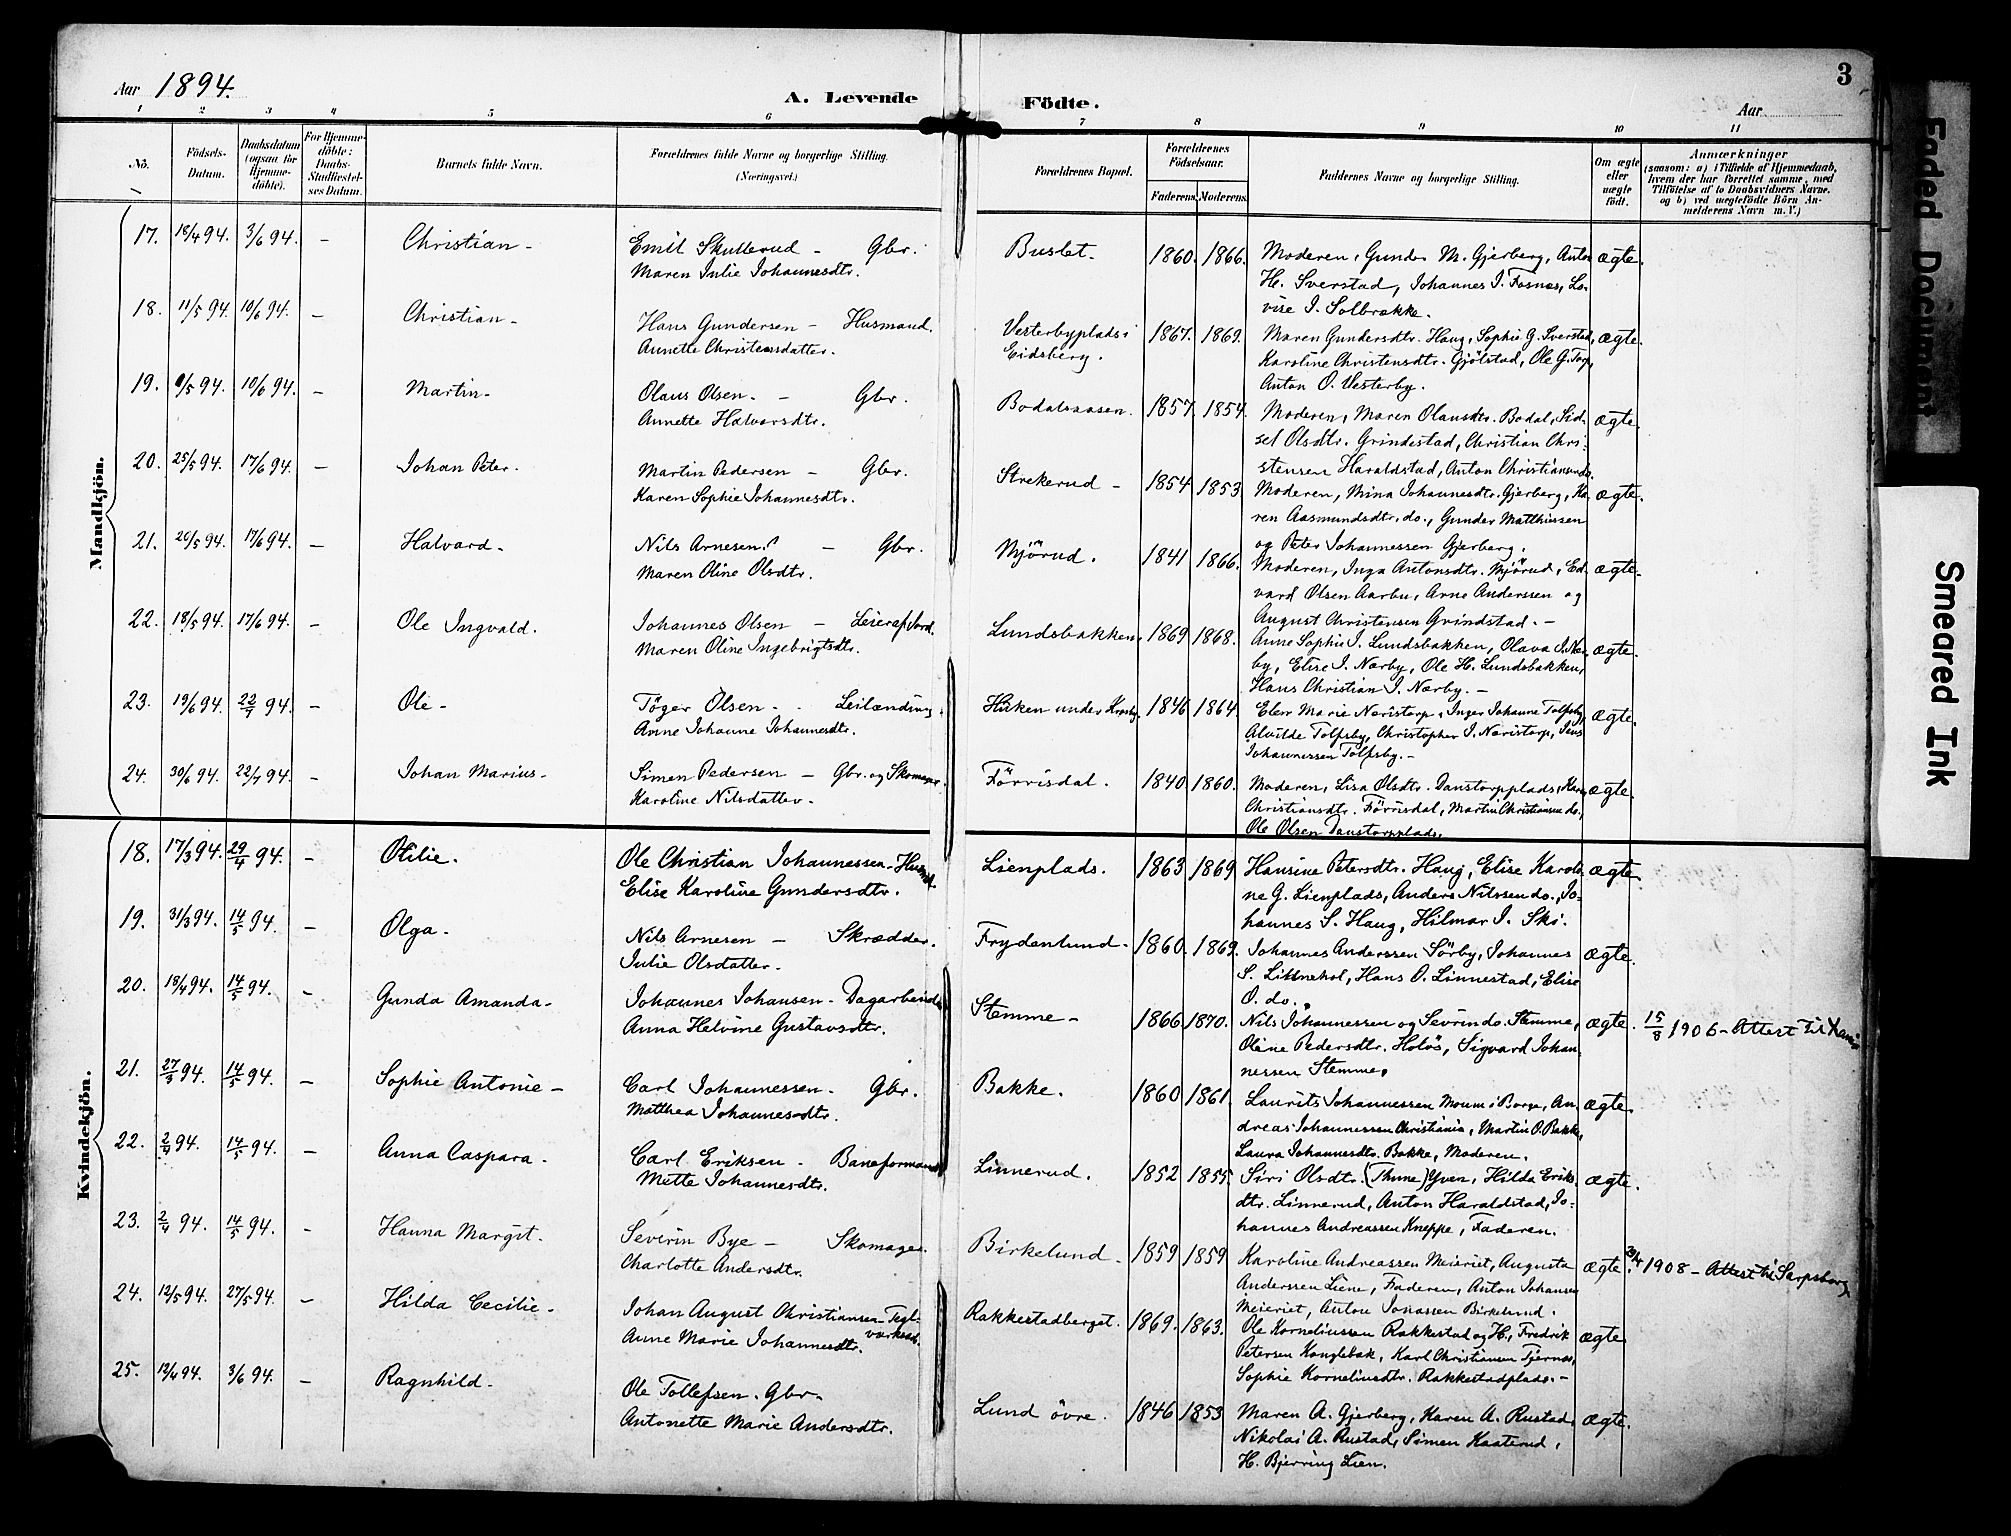 Aar 1894.
A. Levende Födte.
Aar
3
1 2 3 4 5 6 7 8 9 10 11
No.
Födsels-Datum.
Daabsdatum (ogsaa for Hjemme-döbte).
For Hjemme-döbte: Daabs-Stadfæstel-ses Datum.
Barnets fulde Navn.
Forældrenes fulde Navne og borgerlige Stilling. (Næringsvei.)
Forældrenes Bopæl.
Forældrenes Födselsaar.
Faderens. Moderens.
Faddernes Navne og borgerlige Stilling.
Om ægte eller uægte födt.
Anmærkninger
(saasom: a) i Tilfælde af Hjemmedaab, hvem der har forrettet samme, med Tilföielse af to Daabsvidners Navne. og b) ved uægtefödte Börn An-melderens Navn m. V.)
Mandkjön.
17. 18/4 94. 3/6 94. - Christian - Emil Skullerud - Gbr. Buslet. 1860. 1866. Moderen, Gunder M. Gjerberg, Anton ægte.
Maren Julie Johannesdtr. H. Sverstad, Johannes J. Fosnæs, Lo-
vise J. Solbrække.
18. 11/5 94. 10/6 94. - Christian - Hans Gundersen - Husmand. Vesterbyplads i 1867. 1869. Maren Gundersdtr. Haug, Sophie G. Sverstad, ægte.
Annette Christensdatter. Eidsberg. Karoline Christensdtr. Gjölstad, Ole G. Torp,
Anton O. Vesterby.
19. 9/5 94. 10/6 94. - Martin - Olaus Olsen. - Gbr. Bodalsaasen. 1857. 1854. Moderen, Maren Olausdtr. Bodal, Sid- ægte.
Annette Halvorsdtr. sel Olsdtr. Grindestad, Christian Chri-
stensen Haraldstad, Anton Christiansen do.
20. 25/5 94. 17/6 94. - Johan Peter. Martin Pedersen - Gbr. Strekerud - 1854 1853. Moderen, Mina Johannesdtr. Gjerberg, Ka- ægte.
Karen Sophie Johannesdtr. ren Aasmundsdtr. do., Gunder Matthissen
og Peter Johannessen Gjerberg.
21. 20/5 94. 17/6 94. - Halvard. Nils Arnesen. - Gbr. Mjörud. 1841 1866. Moderen, Inga Antonsdtr. Mjörud, Ed- ægte.
Maren Oline Olsdtr. vard Olsen Aarbu, Arne Anderssen og
August Christensen Grindstad. -
22. 18/5 94. 17/6 94. - Ole Ingvald. Johannes Olsen - Leier af Jord. Lundsbakken. 1869 1868. Anne Sophie J. Lundsbakken, Olava J. Nær- ægte.
Maren Oline Ingebrigtsdtr. by, Elise J. Nærby, Ole H. Lundsbakken,
Hans Christian J. Nærby. -
23. 19/6 94. 22/7 94. - Ole - Töger Olsen - Leilænding. under Krosby. 1846 1864. Elen Marie Naristorp, Inger Johanne Tolfsby, ægte.
Anne Johanne Johannesdtr. Alvilde Tolfsby, Christopher J. Naristorp, Jens
Johannessen Tolfsby. -
24. 30/6 94. 22/7 94. - Johan Marius - Simen Pedersen - Gbr. og Skomager. Förrisdal. 1840. 1860. Moderen, Lisa Olsdtr. Danstorpplads, Karen ægte.
Karoline Nilsdatter. Christiansdtr. Förrisdal, Martin Christiansen do.
Ole Olsen Danstorpplads.
Kvindekjön.
18. 17/3 94. 29/4 94. - Otilie. Ole Christian Johannessen - Husmd. Lienplads. 1863 1869 Hansine Petersdtr. Haug, Elise Karoli- ægte.
Elise Karoline Gundersdtr. ne G. Lienplads, Anders Nilssen do., Jo-
hannes S. Haug, Hilmar J. Ski.
19. 31/3 94. 14/5 94. - Olga - Nils Arnesen - Skrædder. Frydenlund - 1860. 1869. Johannes Anderssen Sörby, Johannes ægte.
Julie Olsdatter. S. Hans O. Linnestad, Elise
O. do.
20. 18/4 94. 14/5 94. - Gunda Amanda - Johannes Johansen - Dagarbeider Stemme - 1866 1870. Nils Johannessen og Severin do. Stemme, ægte. 15/8 1906 - Attest til
Anna Helvine Gustavsdtr. Oline Pedersdtr. Holös, Sigvard Johan-
nessen Stemme.
21. 27/3 94. 14/5 94. - Sophie Antonie - Carl Johannessen. Gbr. Bakke. 1860 1861. Laurits Johannessen Moum i Borge, An- ægte.
Matthea Johannesdtr. dreas Johannessen Christiania, Martin O. Bakke,
Laura Johannesdtr. Bakke, Moderen.
22. 2/4 94. 14/5 94. - Anna Caspara. Carl Eriksen. Baneformand Linnerud. 1852 1855. Siri Olsdtr. (Thune) Yven, Hilda Eriks- ægte.
Mette Johannesdtr. dtr. Linnerud, Anton Haraldstad, Jo-
hannes Andreassen Kneppe, Faderen.
23. 2/4 94. 14/5 94. - Hanna Margit. Severin Bye - Skomager. Birkelund. 1859 1859 Karoline Andreassen Meieriet, Augusta ægte. 29/4 1908 - Attest til Sarpsborg
Charlotte Andersdtr. Anderssen Liene, Faderen, Anton Johansen
Meieriet, Anton Jonassen Birkelund.
24. 12/5 94. 27/5 94. - Hilda Cecilie - Johan August Christiansen - Tegl- Rakkestadberget. 1869. 1863. Ole Korneliussen Rakkestad og H., Fredrik ægte
Anne Marie Johannesdtr. værksarb. Petersen Kanglebak, Karl Christiansen Tjernæs,
Sophie Korneliusdtr. Rakkestadplads. -
25. 13/4 94. 3/6 94. - Ragnhild - Ole Tollefsen. Gbr. Lund övre. 1846 1853 Maren A. Gjerberg, Karen A. Rustad, ægte.
Antonette Marie Andersdtr. Nikolai A. Rustad, Simen Kaaterud,
H. Bjerring Lien.
Faded Document
Smeared Ink